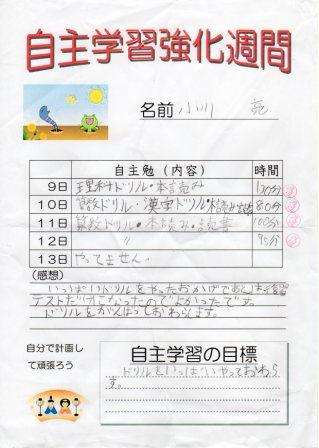 自主学習強化週間
名前 小川
自主勉（内容） 時間
9日 理科ドリル・本読み 130分
10日 算数ドリル・漢字ドリル・本読み 80分
11日 算数ドリル・本読み・読書 100分
12日 〃 95分
13日 やってません。
（感想）
いっぱいドリルをやったおかげで
テストだけになったのでよかったです。
ドリルをがんばっておわらします。
自分で計画し
て頑張ろう
自主学習の目標
ドリルをいっぱいやっておわら
す。